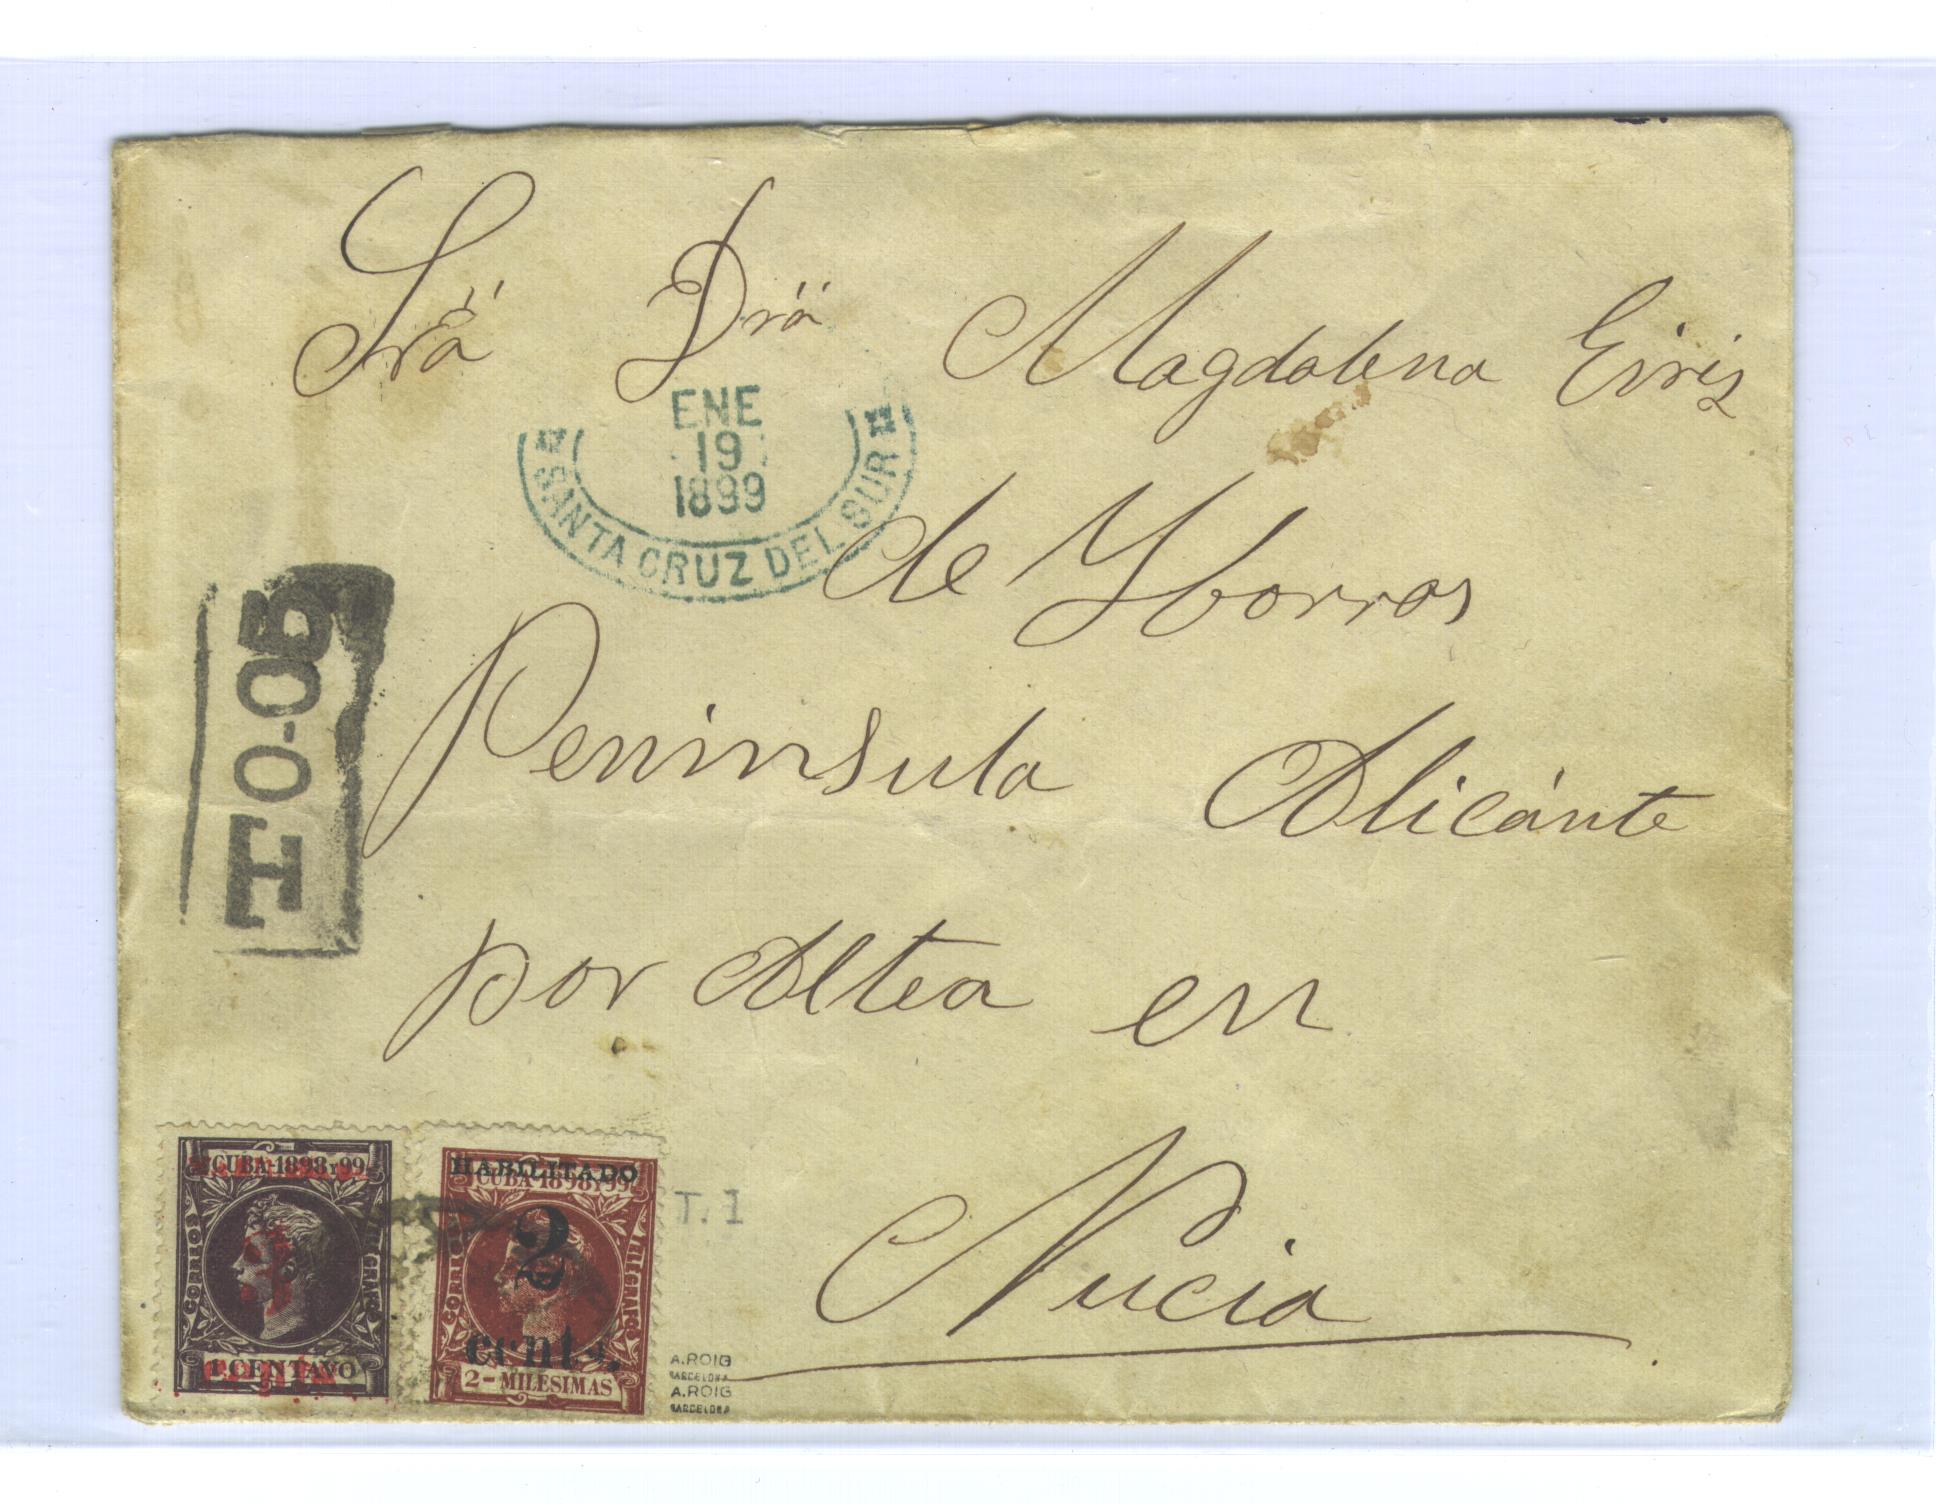 Sra Dra Magdalena Eiriz
ENE
19
1899
SANTA CRUZ DEL SUR
de Yborras
T 0-05
Peninsula Alicánte
por Altea en
Nucia
CUBA 1898 y 99
CORREOS
TELEGRAFOS
1 CENTAVO
HABILITADO
CUBA 1898 Y 99
CORREOS
TELEGRAFOS
2
cents.
2 - MILESIMAS
T. 1
A. ROIG
BARCELONA
A. ROIG
BARCELONA